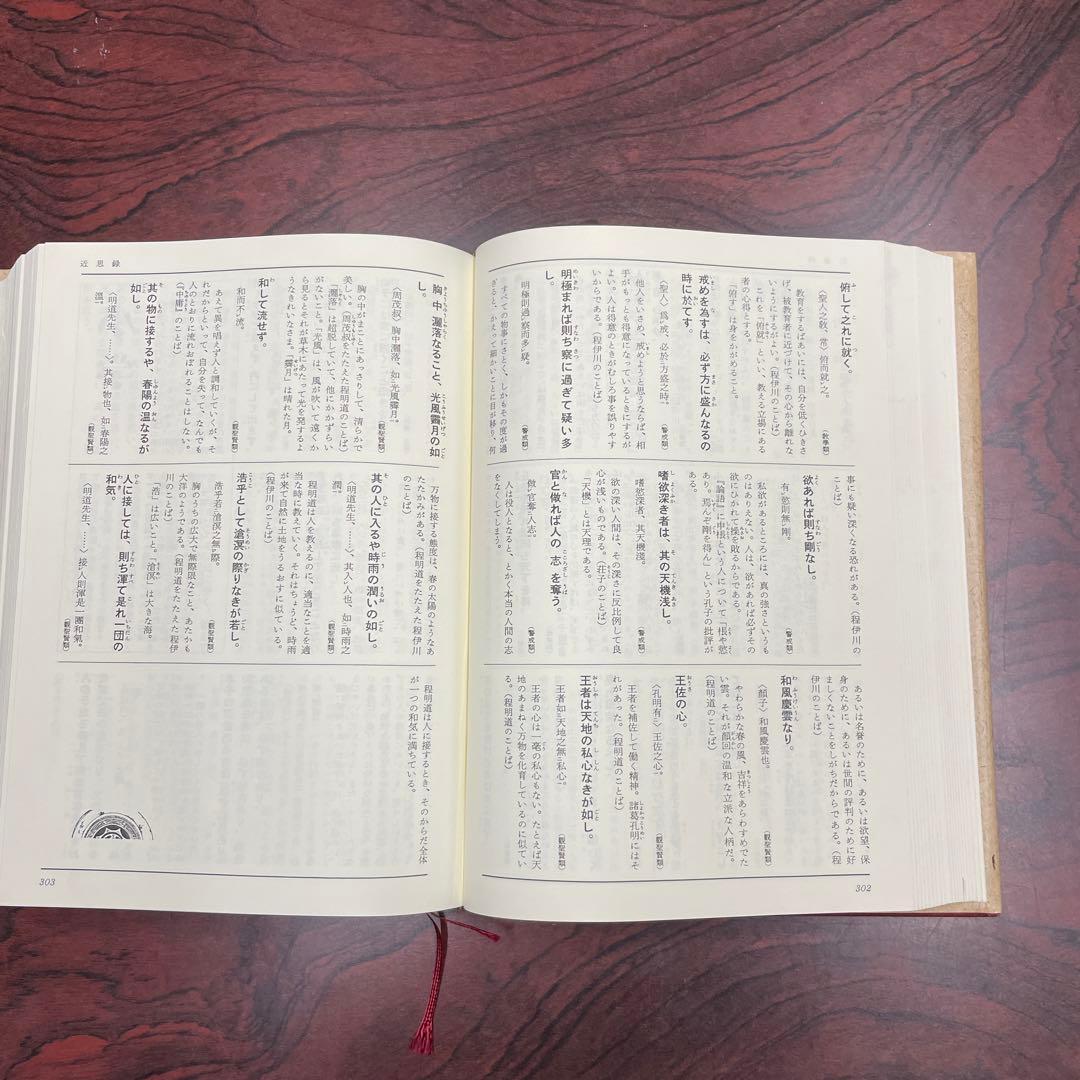 俯して之れに就く。
〈聖人之敎、常〉俯而就之。
(敎學類)
教育をするばあいには、自分を低くひきさ
げ、被教育者に近づけて、その心から離れな
いようにするがよい。(程伊川のことば)
これを「俯就」といい、教える立場にある
者の心得とする。
「俯す」は身をかがめること。
戒めを為すは、必ず方に盛んなるの
時に於てす。
〈聖人〉爲戒、必於方盛之時。
(警戒類)
他人をいさめ、戒めようと思うならば、相
手がもっとも得意になっているときにするが
よい。人は得意のときがむしろ事を誤りやす
いからである。(程伊川のことば)
明極まれば則ち察に過ぎて疑い多
し。
明極則過察而多疑。
(警戒類)
すべての物事にさとく、しかもその度が過
ぎると、かえって細かいことに目が移り、何
事にも疑い深くなる恐れがある。(程伊川の
ことば)
欲あれば則ち剛なし。
有慾則無剛。
(警戒類)
私欲があるところには、真の強さというも
のはありえない。人は、欲があれば必ずその
欲にひかれて操を敗るからである。
『論語』に申棖という人について「棖や慾
あり。焉んぞ剛を得ん」という孔子の批評が
ある。
嗜欲深き者は、其の天機浅し。
嗜慾深者、其天機淺。
(警戒類)
欲の深い人間は、その深さに反比例して良
心が浅いものである。(荘子のことば)
「天機」とは天理である。
官と做れば人の志を奪う。
做官奪人志。
(警戒類)
人は役人となると、とかく本当の人間の志
をなくしてしまう。
あるいは名誉のために、あるいは欲望、保
身のために、あるいは世間の評判のために好
ましくないことをしがちだからである。(程
伊川のことば)
和風慶雲なり。
〈顏子〉和風慶雲也。
(觀聖賢類)
やわらかな春の風、吉祥をあらわすめでた
い雲。それが顔回の温和な立派な人柄だ。
(程明道のことば)
王佐の心。
〈孔明有〉王佐之心。
(觀聖賢類)
王者を補佐して働く精神。諸葛孔明にはそ
れがあった。(程明道のことば)
王者は天地の私心なきが如し。
王者如天地之無私心。
(觀聖賢類)
王者の心は一毫の私心もない。たとえば天
地のあまねく万物を化育しているのに似てい
る。(程明道のことば)
302
近思録
胸中灑落なること、光風霽月の如
し。
〈周茂叔〉胸中灑落、如光風霽月。
(觀聖賢類)
胸の中がまことにあっさりして、清らかで
美しい。(周茂叔をたたえた程明道のことば)
「灑落」は超脱していて、他にかかずらい
がないこと。「光風」は、風が吹いて遠くか
ら見るとそれが草木にあたって光を発するよ
うなきれいなさま。「霽月」は晴れた月。
和して流せず。
和而不流。
(觀聖賢類)
あえて異を唱えず人と調和していくが、そ
れだからといって、自分を失って、なんでも
人のとおりに流れおぼれることはしない。
(『中庸』のことば)
其の物に接するや、春陽の温なるが
如し。
〈明道先生、……〉、其接物也、如春陽之
溫。
(觀聖賢類)
万物に接する態度は、春の太陽のようなあ
たたかみがある。(程明道をたたえた程伊川
のことば)
其の人に入るや時雨の潤いの如し。
〈明道先生、……〉、其入人也、如時雨之
潤。
(觀聖賢類)
程明道は人を教えるのに、適当なことを適
当な時に教えていく。それはちょうど、時雨
が来て自然に土地をうるおすに似ている。
(程伊川のことば)
浩乎として滄溟の際りなきが若し。
浩乎若滄溟之無際。
(觀聖賢類)
「浩」は広いこと。「滄溟」は大きな海。
胸のうちの広大で無際限なこと、あたかも
大洋のようである。(程明道をたたえた程伊
川のことば)
人に接しては、則ち渾て是れ一団の
和気。
〈明道先生、……〉接人則渾是一團和氣。
(觀聖賢類)
程明道は人に接するとき、そのからだ全体
が一つの和気に満ちている。
303